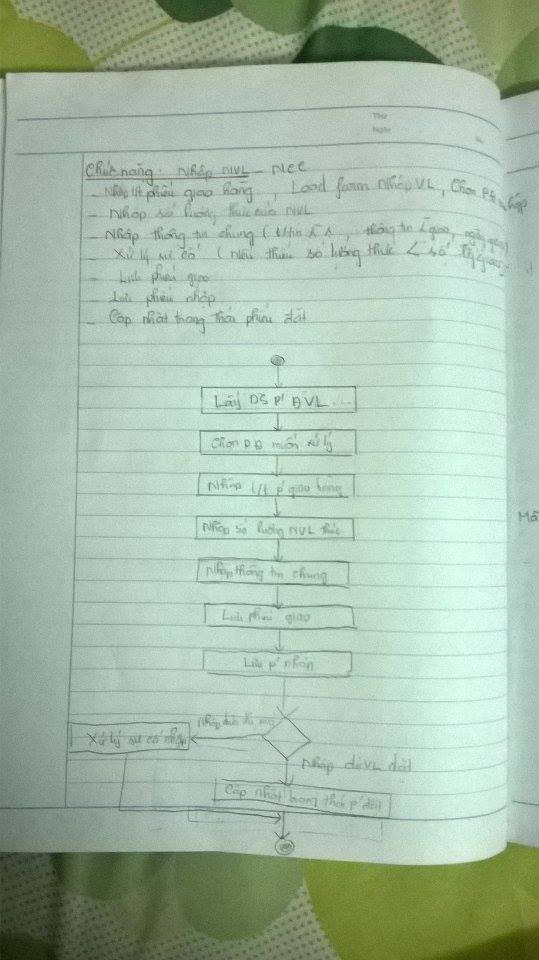 Thứ
Ngày
No.
Chức năng: Nhập NVL - NCC
- Nhập t/t phiếu giao hàng, Load form Nhập VL, Chọn
- Nhập số lượng thực của NVL
- Nhập thông tin chung (t/tin, thông tin giao, ngày giao)
Xử lý sự cố (Nếu thiếu số lượng thực < số
- Lưu phiếu giao
- Lưu phiếu nhập
- Cập nhật trạng thái phiếu đặt
Lấy DS P' ĐVL ...
Chọn PĐ muốn xử lý
Nhập t/t p' giao hàng
Nhập số lượng NVL thực
Nhập thông tin chung
Lưu phiếu giao
Lưu p' nhận
Xử lý sự cố nhập
Nhập đủ VL đặt
Cập nhật trạng thái p' đặt